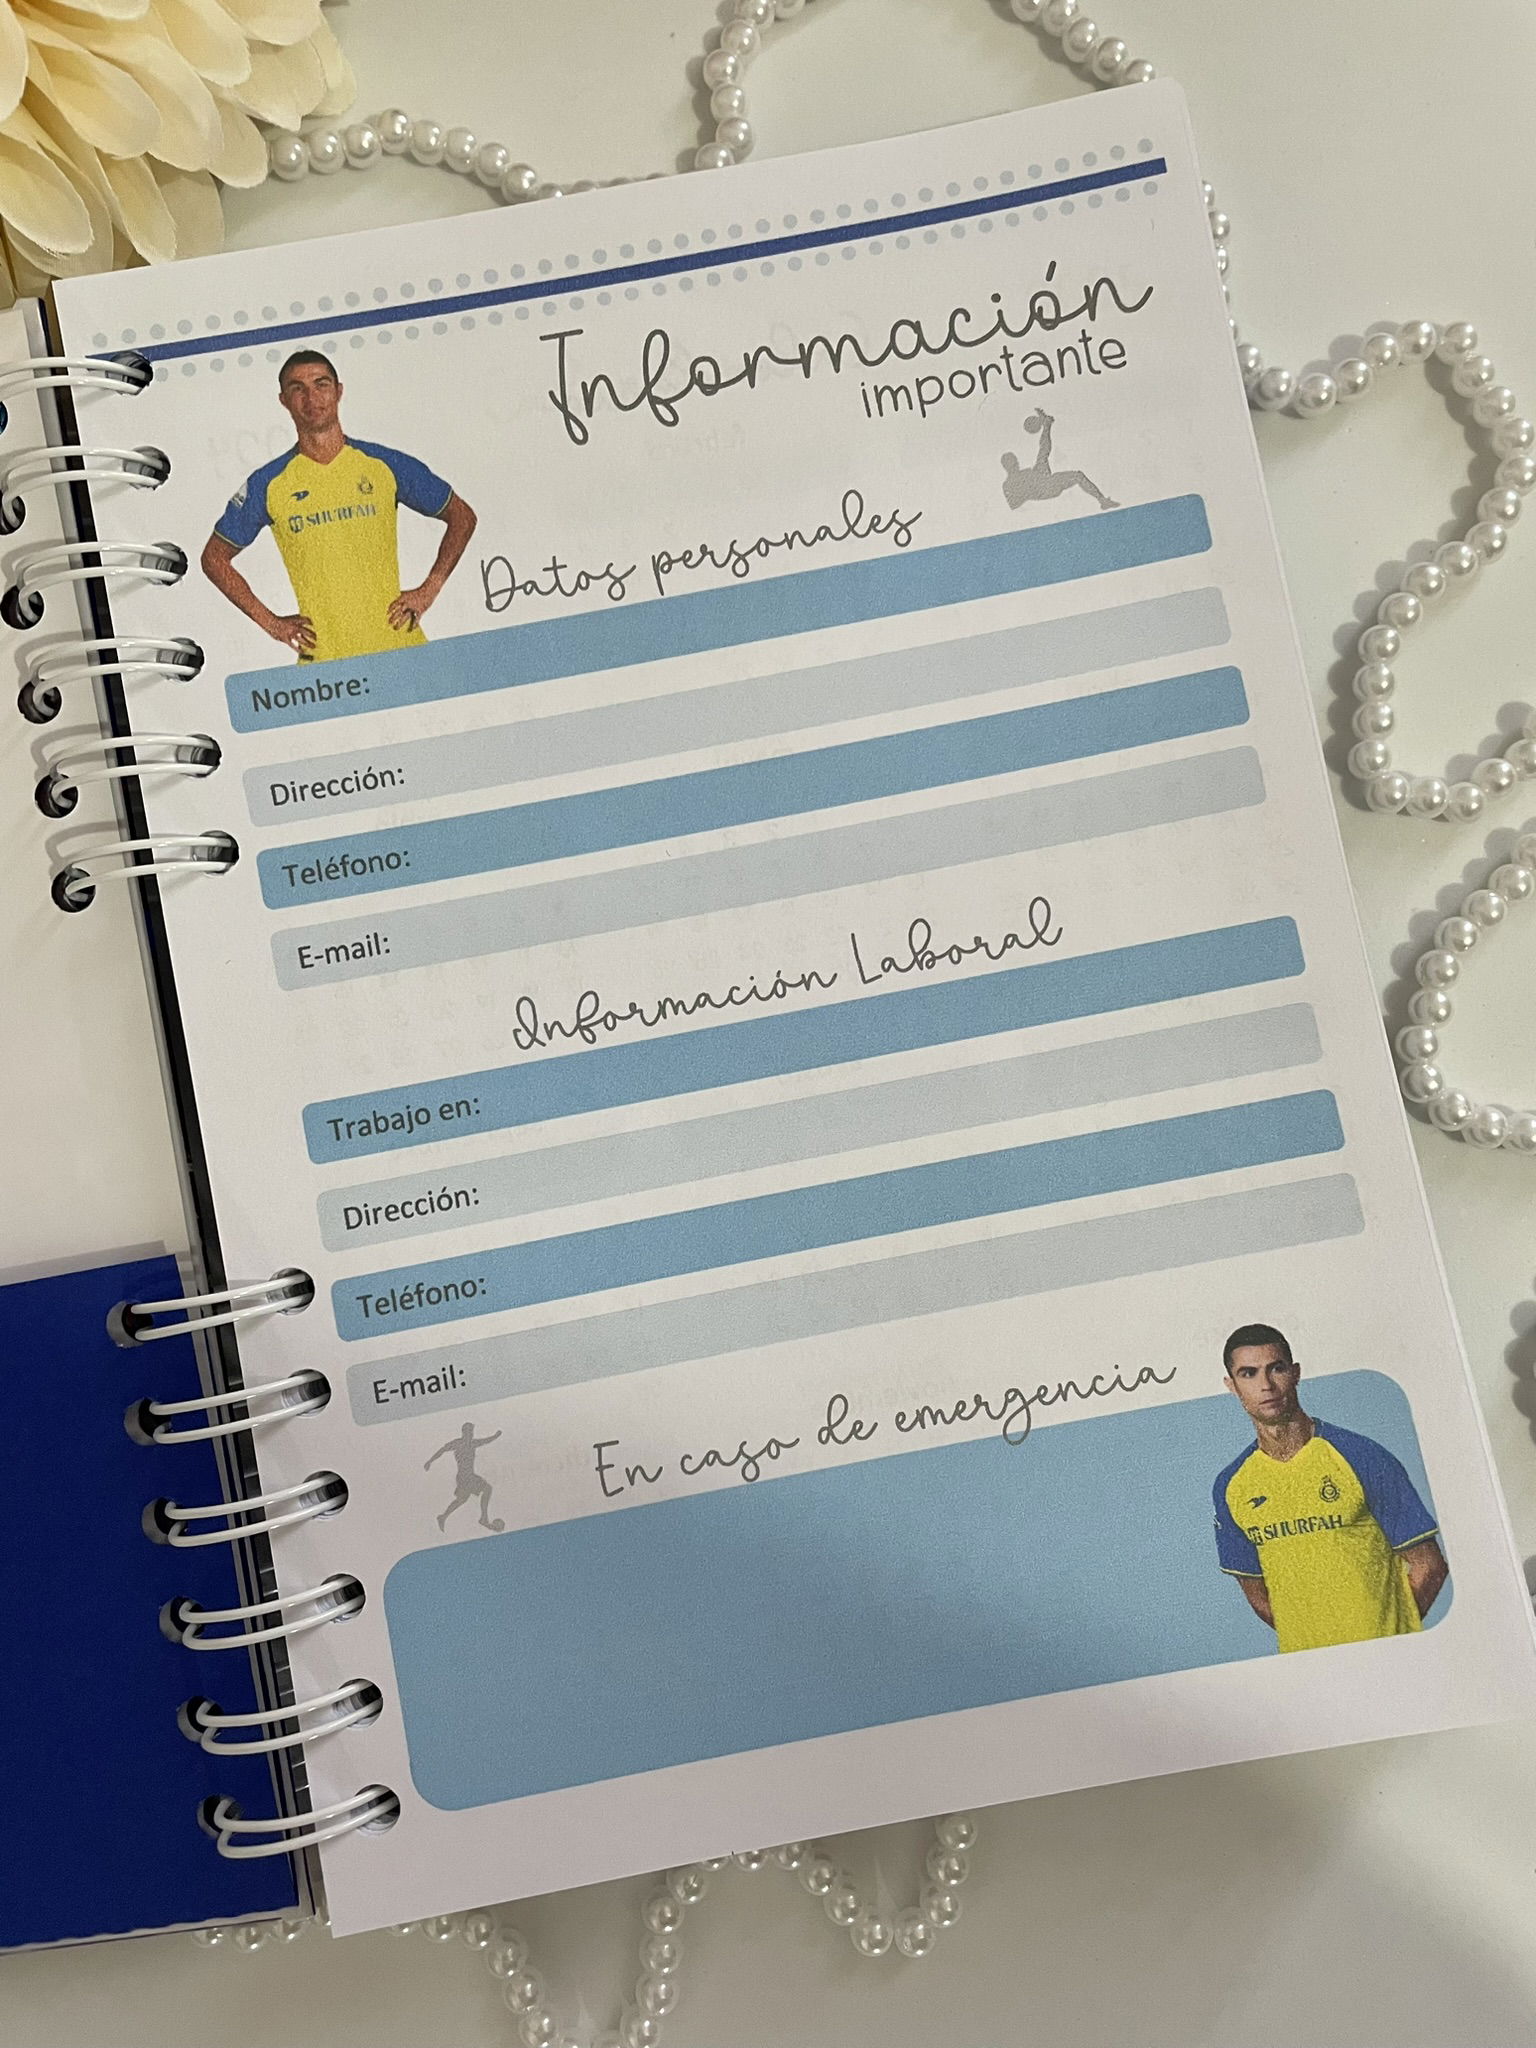 Información
importante
SHURFAH
Datos personales
Nombre:
Dirección:
Teléfono:
E-mail:
Información Laboral
Trabajo en:
Dirección:
Teléfono:
E-mail:
En caso de emergencia
SHURFAH